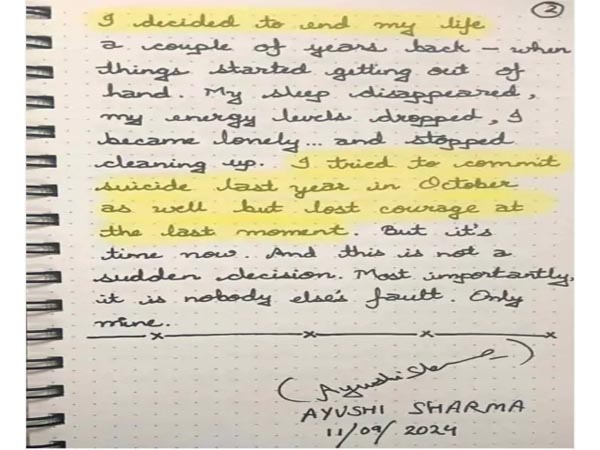 2
I decided to end my life
a couple of years back – when
things started getting out of
hand. My sleep disappeared,
my energy levels dropped, I
became lonely... and stopped
cleaning up. I tried to commit
suicide last year in October
as well but lost courage at
the last moment. But it's
time now. And this is not a
sudden decision. Most importantly,
it is nobody else's fault. Only
mine.
(Ayushi Sharma)
AYUSHI SHARMA
11/09/2024